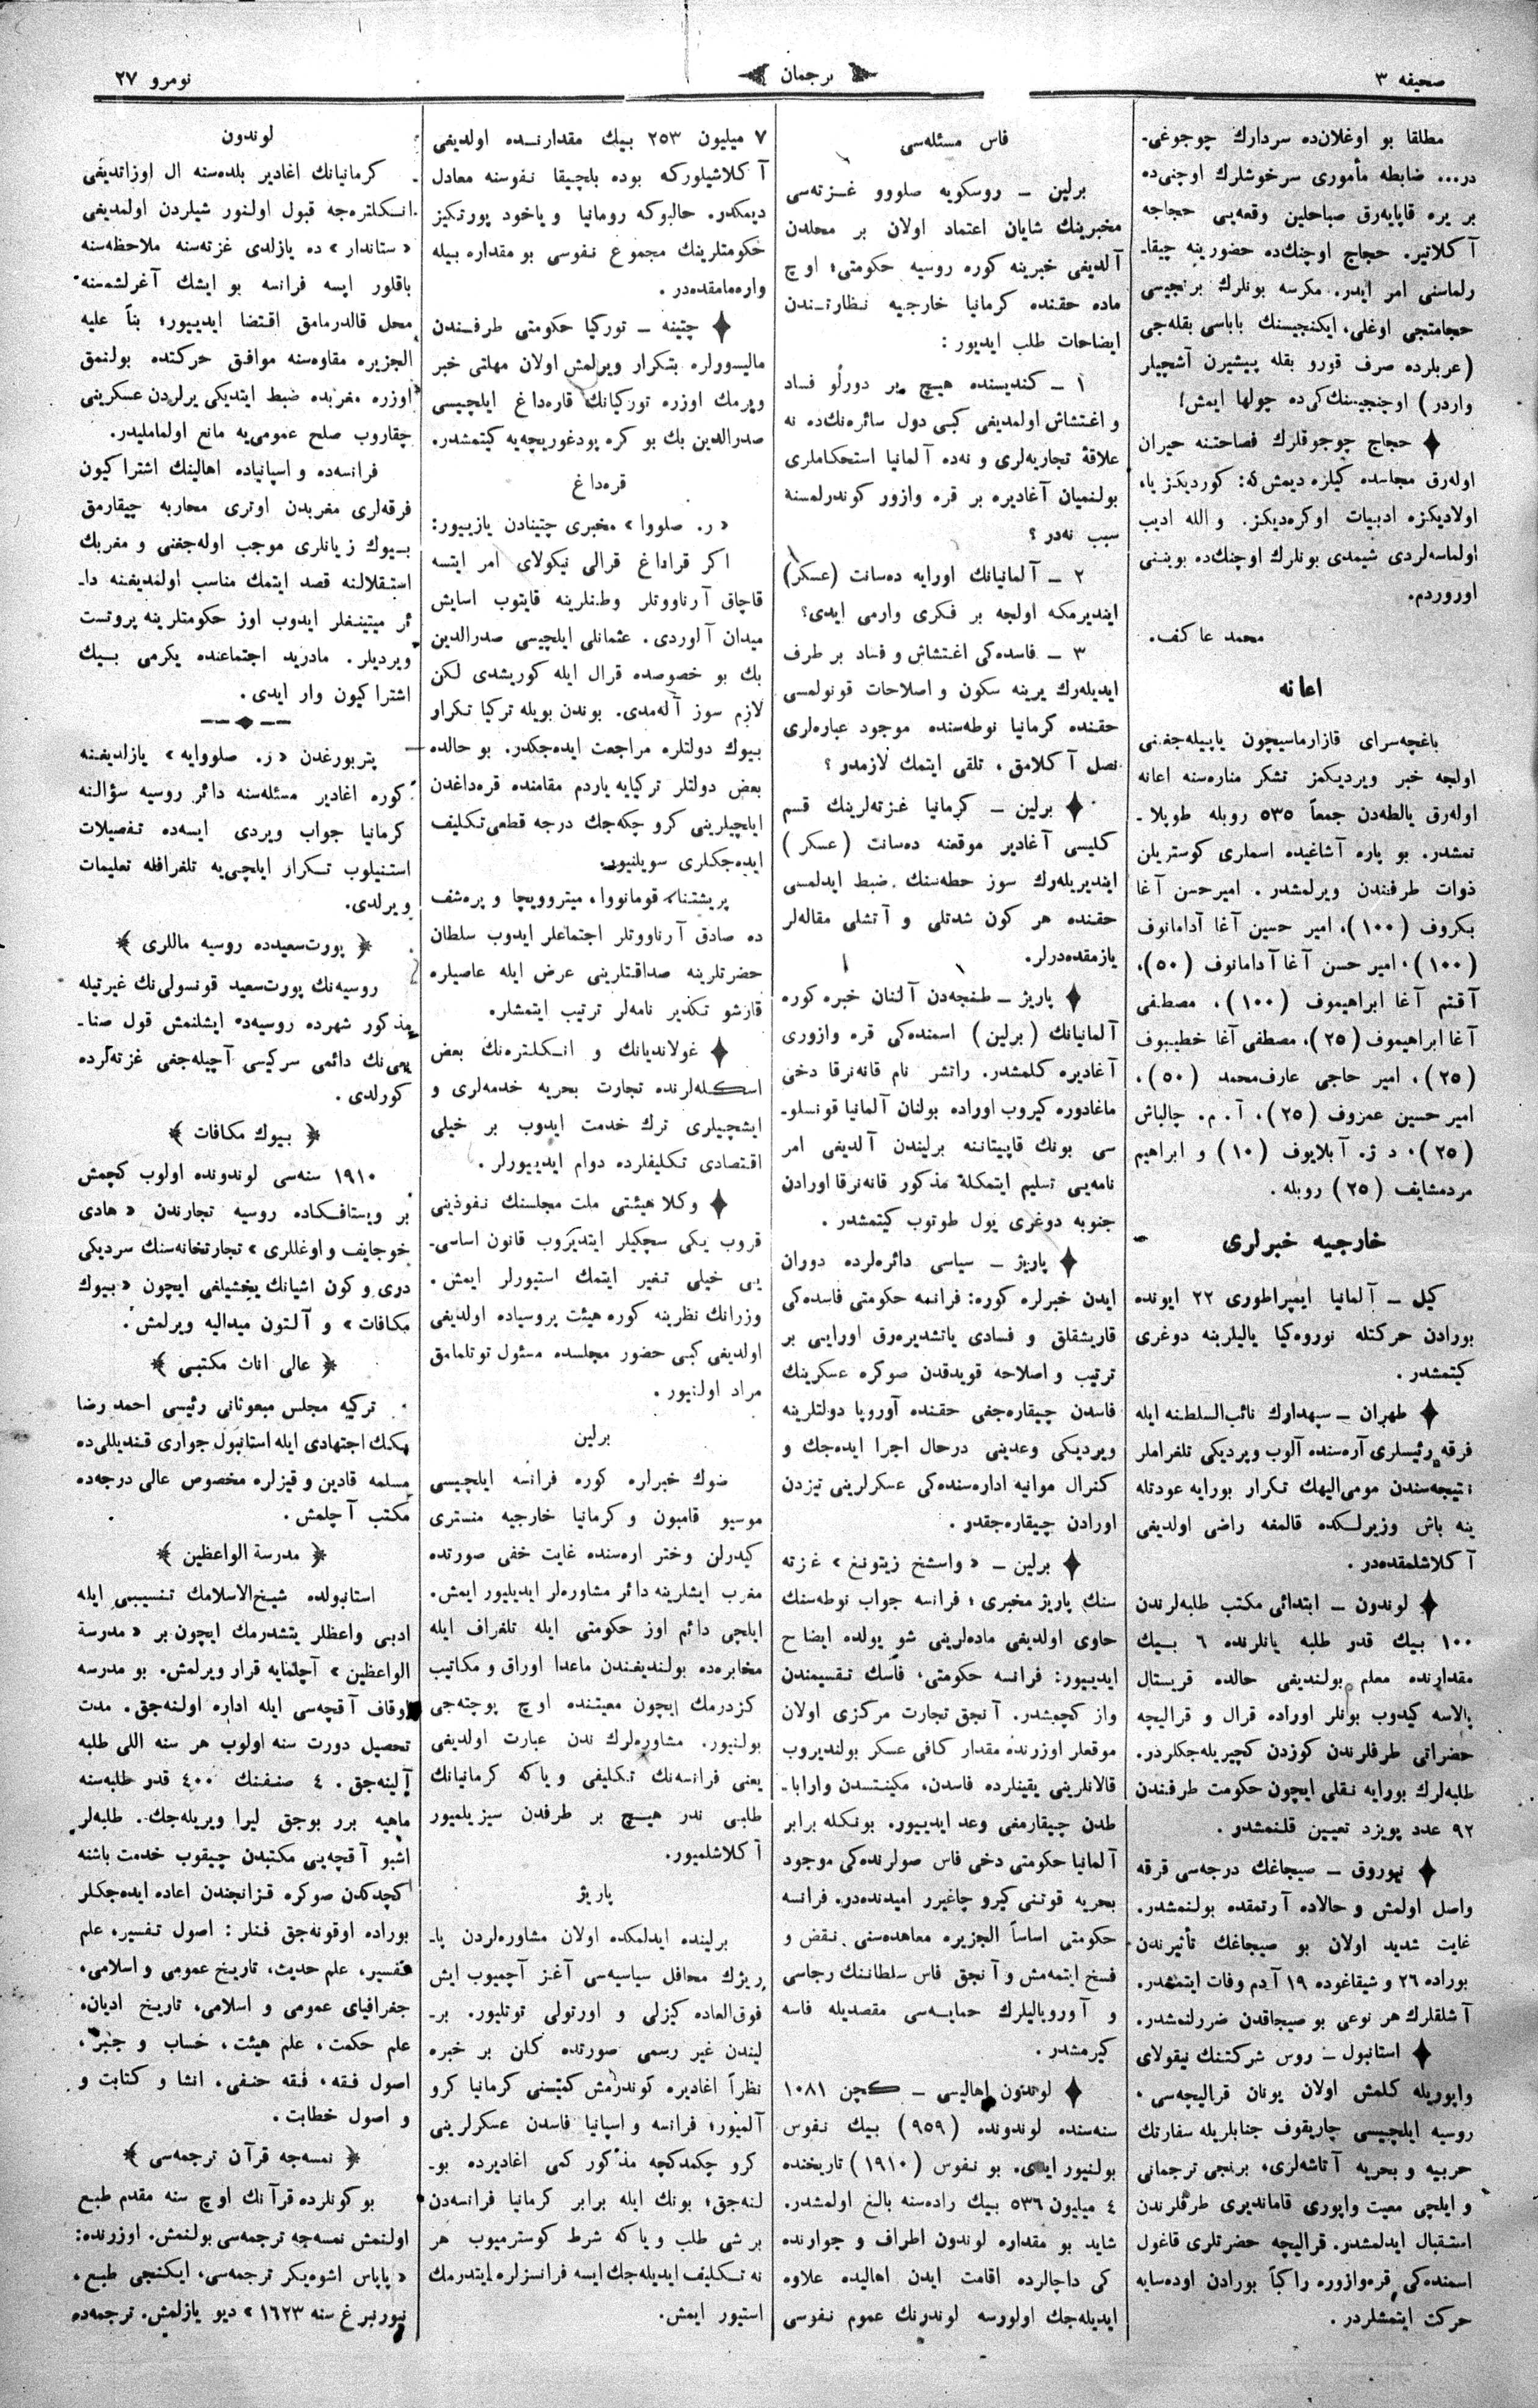 صحیفه ۳
ترجمان
نومرو ۲۷
مطلقا بو اوغلان‌ده سردارك چوجوغی‌ـ
در... ضابطه مأموری سرخوشلرك اوچنی‌ده
بر یره قاپایه‌رق صباحلین وقعه‌یی حجاجه
آكلاتیر. حجاج اوچنك‌ده حضورینه چیقا‌ـ
رلماسنی امر ایدر. مكرسه بونلرك برنجیسی
حجامتجی اوغلی، ایكنجیسنك باباسی بقله‌جی
(عربلرده صرف قورو بقله پیشیرن آشچیلر
واردر) اوچنجیسنك‌كی‌ده چولها ایمش!
حجاج چوجوقلرك فصاحتنه حیران
اوله‌رق مجلسده كیلره دیمش كه: كوردیكز یا،
اولادیكزه ادبیات اوكره‌دیكز. والله ادیب
اولماسه‌لردی شیمدی بونلرك اوچنك‌ده بوینـنی
اوروردم.
محمد عاكف.
اعانه
باغچه‌سرای قازارماسیچون یاپیله‌جغنی
اولجه خبر ویردیكمز تشكر مناره‌سنه اعانه
اوله‌رق یالطه‌دن جمعاً ۵۳۵ روبله طوپلا‌ـ
نمشدر. بو پاره آشاغیده اسملری كوستریلن
ذوات طرفندن ویرلمشدر. امیرحسن آغا
بكروف (۱۰۰)، امیر حسین آغا آدامانوف
(۱۰۰)، امیر حسن آغا آدامانوف (۵۰)،
آقتم آغا ابراهیموف (۱۰۰)، مصطفی
آغا ابراهیموف (۲۵)، مصطفی آغا خطیبوف
(۲۵)، امیر حاجی عارف‌محمد (۵۰)،
امیر حسین عمزوف (۲۵)، آ. م. چالباش
(۲۵)، د ژ. آبلایوف (۱۰) و ابراهیم
مردمشایف (۲۵) روبله.
خارجیه خبرلری
كیل ـ آلمانیا ایمپراطوری ۲۲ ایونده
بورادن حركتله نوروه‌كیا یالیلرینه دوغری
كیتمشدر.
طهران ـ سپهدارك نائب‌السلطنه ایله
فرقه رئیسلری آره‌سنده آلوب ویردیكی تلغراملر
نتیجه‌سندن مومی‌الیهك تكرار بورایه عودتله
ینه باش وزیرلكده قالمغه راضی اولدیغی
آكلاشلمقده‌در.
لوندون ـ ابتدائی مكتب طلبه‌لرندن
۱۰۰ بیك قدر طلبه یانلرنده ۶ بیك
مقدارنده معلم بولندیغی حالده قریستال
پالاسه كیدوب بونلر اوراده قرال و قرالیچه
حضراتی طرفلرندن كوزدن كچیریله‌جكلردر.
طلبه‌لرك بورایه نقلی ایچون حكومت طرفندن
۹۲ عدد پویزد تعیین قلنمشدر.
نیوروق ـ صیجاغك درجه‌سی قرقه
واصل اولمش و حالاده آرتمقده بولنمشدر.
غایت شدید اولان بو صیجاغك تأثیرندن
بوراده ۲۶ و شیقاغوده ۱۹ آدم وفات ایتمشدر.
آشلقلرك هر نوعی بو صیجاقدن ضررلنمشدر.
استانبول ـ روس شركتنك نیقولای
واپوریله كلمش اولان یونان قرالیچه‌سی
روسیه ایلچیسی چاریقوف جنابلریله سفارتك
حربیه و بحریه آتاشه‌لری، برنجی ترجمانی
و ایلچی معیت واپوری قاماندیری طرفلرندن
استقبال ایدلمشدر. قرالیچه حضرتلری قاغول
اسمنده‌كی قره‌وازوره راكباً بورادن اوده‌سایه
حركت ایتمشلردر.
فاس مسئله‌سی
برلین ـ روسكویه صلووو غزته‌سی
مخبرینك شایان اعتماد اولان بر محلدن
آلدیغی خبرینه كوره روسیه حكومتی؛ اوچ
ماده حقنده كرمانیا خارجیه نظارتندن
ایضاحات طلب ایدیور:
۱ ـ كندیسنده هیچ بر دورلو فساد
و اغتشاش اولمدیغی كبی دول سائره‌نك‌ده نه
علاقهٔ تجاریه‌لری و نه‌ده آلمانیا استحكاملری
بولنمیان آغادیره بر قره وازور كوندرلمسنه
سبب نه‌در؟
۲ ـ آلمانیانك اورایه ده‌سانت (عسكر)
ایندیرمكه اولجه بر فكری وارمی ایدی؟
۳ ـ فاسده‌كی اغتشاش و فساد بر طرف
ایدیله‌رك یرینه سكون و اصلاحات قونولمسی
حقنده كرمانیا نوطه‌سنده موجود عباره‌لری
نصل آكلامق، تلقی ایتمك لازمدر؟
برلین ـ كرمانیا غزته‌لرینك قسم
كلیسی آغادیر موقعنه ده‌سانت (عسكر)
ایندیریله‌رك سوز حطه‌سنك ضبط ایدلمسی
حقنده هر كون شدتلی و آتشلی مقاله‌لر
یازمقده‌درلر.
پاریژ ـ طنجه‌دن آلنان خبره كوره
آلمانیانك (برلین) اسمنده‌كی قره وازوری
آغادیره كلمشدر. رانشر نام قانه‌نرقا دخی
ماغادوره كیروب اوراده بولنان آلمانیا قونسلو‌ـ
سی بونك قاپیتاننه برلیندن آلدیغی امر
نامه‌یی تسلیم ایتمكلهٔ مذكور قانه‌نرقا اورادن
جنوبه دوغری یول طوتوب كیتمشدر.
پاریژ ـ سیاسی دائره‌لرده دوران
ایدن خبرلره كوره: فرانسه حكومتی فاسده‌كی
قاریشقلق و فسادی یاتشدیره‌رق اورایی بر
ترتیب و اصلاحه قویدقدن صوكره عسكرینك
فاسدن چیقاره‌جغی حقنده آوروپا دولتلرینه
ویردیكی وعدینی درحال اجرا ایده‌جك و
كنرال موانیه اداره‌سنده‌كی عسكرلرینی تیزدن
اورادن چیقاره‌جقدر.
برلین ـ «واسشخ زیتونغ» غزته
سنك پاریژ مخبری؛ فرانسه جواب نوطه‌سنك
حاوی اولدیغی ماده‌لرینی شو یولده ایضاح
ایدییور: فرانسه حكومتی، فاسك تقسیمندن
واز كچمشدر. آنجق تجارت مركزی اولان
موقعلر اوزرنده مقدار كافی عسكر بولندیروب
قالانلرینی یقینلرده فاسدن، مكینتسدن وارابا‌ـ
طدن چیقارمغی وعد ایدییور. بونكله برابر
آلمانیا حكومتی دخی فاس صولرنده‌كی موجود
بحریه قوتنی كیرو چاغیرر امیدنده‌در. فرانسه
حكومتی اساساً الجزیره معاهده‌سنی نقض و
فسخ ایتمه‌مش و آنجق فاس سلطاننك رجاسی
و آوروپالیلرك حمایه‌سی مقصدیله فاسه
كیرمشدر.
لوندون اهالیسی ـ كچن ۱۰۸۱
سنه‌سنده لوندونده (۹۵۹) بیك نفوس
بولنیور ایدی. بو نفوس (۱۹۱۰) تاریخنده
۴ میلیون ۵۳۶ بیك راده‌سنه بالغ اولمشدر.
شاید بو مقداره لوندون اطراف و جوارنده
كی داچالرده اقامت ایدن اهالیده علاوه
ایدیله‌جك اولورسه لوندرنك عموم نفوسی
۷ میلیون ۲۵۳ بیك مقدارنده اولدیغی
آكلاشیلوركه بوده بلچیقا نفوسنه معادل
دیمكدر. حالبوكه رومانیا و یاخود پورتكیز
حكومتلرینك مجموع نفوسی بو مقداره بیله
وارمامقده‌در.
چتینه ـ توركیا حكومتی طرفندن
مالیسوولره بتكرار ویرلمش اولان مهلتی خبر
ویرمك اوزره توركیانك قاره‌داغ ایلچیسی
صدرالدین بك بو كره پودغوریچه‌یه كیتمشدر.
قره‌داغ
«ر. صلووا» مخبری چتینادن یازییور:
اكر قراداغ قرالی نیكولای امر ایتسه
قاچاق آرناووتلر وطنلرینه قایتوب اسایش
میدان آلوردی. عثمانلی ایلچیسی صدرالدین
بك بو خصوصده قرال ایله كوریشدی لكن
لازم سوز آله‌مدی. بوندن بویله تركیا تكرار
بیوك دولتلره مراجعت ایده‌جكدر. بو حالده
بعض دولتلر تركیایه یاردم مقامنده قره‌داغدن
ایلچیلرینی كرو چكه‌جك درجه قطعی تكلیف
ایده‌جكلری سویلنیور.
پریشتنا، قومانووا، میتروویچا و پره‌شف
ده صادق آرناووتلر اجتماعلر ایدوب سلطان
حضرتلرینه صداقتلرینی عرض ایله عاصیلره
قارشو تكدیر نامه‌لر ترتیب ایتمشلر.
غولاندیانك و انكلتره‌نك بعض
اسكله‌لرنده تجارت بحریه خدمه‌لری و
ایشچیلری ترك خدمت ایدوب بر خیلی
اقتصادی تكلیفلرده دوام ایدییورلر.
وكلا هیئتی ملت مجلسنك نفوذینی
قروب یكی سچكیلر ایتدیروب قانون اساسی‌ـ
یی خیلی تغیر ایتمك استیورلر ایمش.
وزرانك نظرینه كوره هیئت پروسیاده اولدیغی
اولدیغی كبی حضور مجلسده مسئول توتلمامق
مراد اولنیور.
برلین
ضوك خبرلره كوره فرانسه ایلچیسی
موسیو قامبون و كرمانیا خارجیه منستری
كیدرلن وختر اره‌سنده غایت خفی صورتده
مغرب ایشلرینه دائر مشاوره‌لر ایدیلیور ایمش.
ایلچی دائم اوز حكومتی ایله تلغراف ایله
مخابره‌ده بولندیغندن ماعدا اوراق و مكاتیب
كزدرمك ایچون معیتنده اوچ پوچته‌جی
بولنیور. مشاوره‌لرك ندن عبارت اولدیغی
یعنی فرانسه‌نك تكلیفی و یاكه كرمانیانك
طلبی ندر هیچ بر طرفدن سیزیلمیور
آكلاشلمیور.
پاریژ
برلینده ایدلمكده اولان مشاوره‌لردن پا‌ـ
ریژك محافل سیاسیه‌سی آغز آچمیوب ایش
فوق‌العاده كیزلی و اورتولی توتلیور. بر‌ـ
لیندن غیر رسمی صورتده كلن بر خبره
نظراً اغادیره كوندرمش كمیسنی كرمانیا كرو
آلمیور؛ فرانسه و اسپانیا فاسدن عسكرلرینی
كرو چكمدكچه مذكور كمی اغادیرده بو‌ـ
لنه‌جق؛ بونك ایله برابر كرمانیا فرانسه‌دن
برشی طلب و یاكه شرط كوسترمیوب هر
نه تكلیف ایدیله‌جك ایسه فرانسزلره ایتدرمك
استیور ایمش.
لوندون
كرمانیانك اغادیر بلده‌سنه ال اوزاتدیغی
انكلتره‌جه قبول اولنور شیلردن اولمدیغی
«ستاندار» ده یازلدی غزته‌سنه ملاحظه‌سنه
باقلور ایسه فرانسه بو ایشك آغرلشمسنه
محل قالدرمامق اقتضا ایدییور؛ بناً علیه
الجزیره مقاوه‌سنه موافق حركتده بولنمق
اوزره مغربده ضبط ایتدیكی یرلردن عسكرینی
چقاروب صلح عمومی‌یه مانع اولماملیدر.
فرانسه‌ده و اسپانیاده اهالینك اشتراكیون
فرقه‌لری مغربدن اوتری محاربه چیقارمق
بیوك زیانلری موجب اوله‌جغنی و مغربك
استقلالنه قصد ایتمك مناسب اولمدیغنه دا‌ـ
ئر میتینغلر ایدوب اوز حكومتلرینه پروتست
ویردیلر. مادرید اجتماعنده یكرمی بیك
اشتراكیون وار ایدی.
پتربورغدن «ر. صلووایه» یازلدیغنه
كوره اغادیر مسئله‌سنه دائر روسیه سؤالنه
كرمانیا جواب ویردی ایسه‌ده تفصیلات
استنیلوب تكرار ایلچی‌یه تلغرافله تعلیمات
ویرلدی.
﴿ پورت‌سعیدده روسیه ماللری ﴾
روسیه‌نك پورت‌سعید قونسولی‌نك غیرتیله
مذكور شهرده روسیه‌ده ایشلنمش قول صنا‌ـ
یعی‌نك دائمی سركیسی آچیله‌جغی غزته‌لرده
كورلدی.
﴿ بیوك مكافات ﴾
۱۹۱۰ سنه‌سی لوندونده اولوب كچمش
بر ویستافكاده روسیه تجارندن «هادی
خوجایف و اوغللری» تجارتخانه‌سنك سردیكی
دری و كون اشیانك یخشیلغی ایچون «بیوك
مكافات» و آلتون میدالیه ویرلمش.
﴿ عالی اناث مكتبی ﴾
تركیه مجلس مبعوثانی رئیسی احمد رضا
بكك اجتهادی ایله استانبول جواری قندیللی‌ده
مسلمه قادین و قیزلره مخصوص عالی درجه‌ده
مكتب آچلمش.
﴿ مدرسة الواعظین ﴾
استانبولده شیخ‌الاسلامك تنسیبی ایله
ادبی واعظلر یتشدرمك ایچون بر «مدرسة
الواعظین» آچلمایه قرار ویرلمش. بو مدرسه
اوقاف آقچه‌سی ایله اداره اولنه‌جق. مدت
تحصیل دورت سنه اولوب هر سنه اللی طلبه
آلینه‌جق. ۴ صنفنك ۴۰۰ قدر طلبه‌سنه
ماهیه برر بوچق لیرا ویریله‌جك. طلبه‌لر
اشبو آقچه‌یی مكتبدن چیقوب خدمت باشنه
كچدكدن صوكره قزانجندن اعاده ایده‌جكلر
بوراده اوقونه‌جق فنلر: اصول تفسیر، علم
تفسیر، علم حدیث، تاریخ عمومی و اسلامی،
جغرافیای عمومی و اسلامی، تاریخ ادیان،
علم حكمت، علم هیئت، حساب و جبر،
اصول فقه، فقه حنفی، انشا و كتابت و
و اصول خطابت.
﴿ نمسه‌جه قرآن ترجمه‌سی ﴾
بو كونلرده قرآنك اوچ سنه مقدم طبع
اولنمش نمسه‌جه ترجمه‌سی بولنمش. اوزرنده:
«پاپاس اشویكر ترجمه‌سی، ایكنجی طبع،
نیورنبرغ سنه ۱۶۲۳» دیو یازلمش. ترجمه‌ده